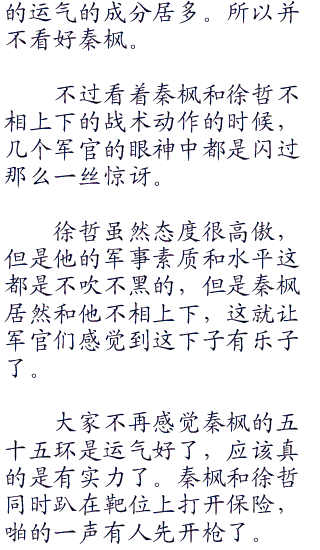 的运气的成分居多。所以并
不看好秦枫。
不过看着秦枫和徐哲不
相上下的战术动作的时候，
几个军官的眼神中都是闪过
那么一丝惊讶。
徐哲虽然态度很高傲，
但是他的军事素质和水平这
都是不吹不黑的，但是秦枫
居然和他不相上下，这就让
军官们感觉到这下子有乐子
了。
大家不再感觉秦枫的五
十五环是运气好了，应该真
的是有实力了。秦枫和徐哲
同时趴在靶位上打开保险，
啪的一声有人先开枪了。